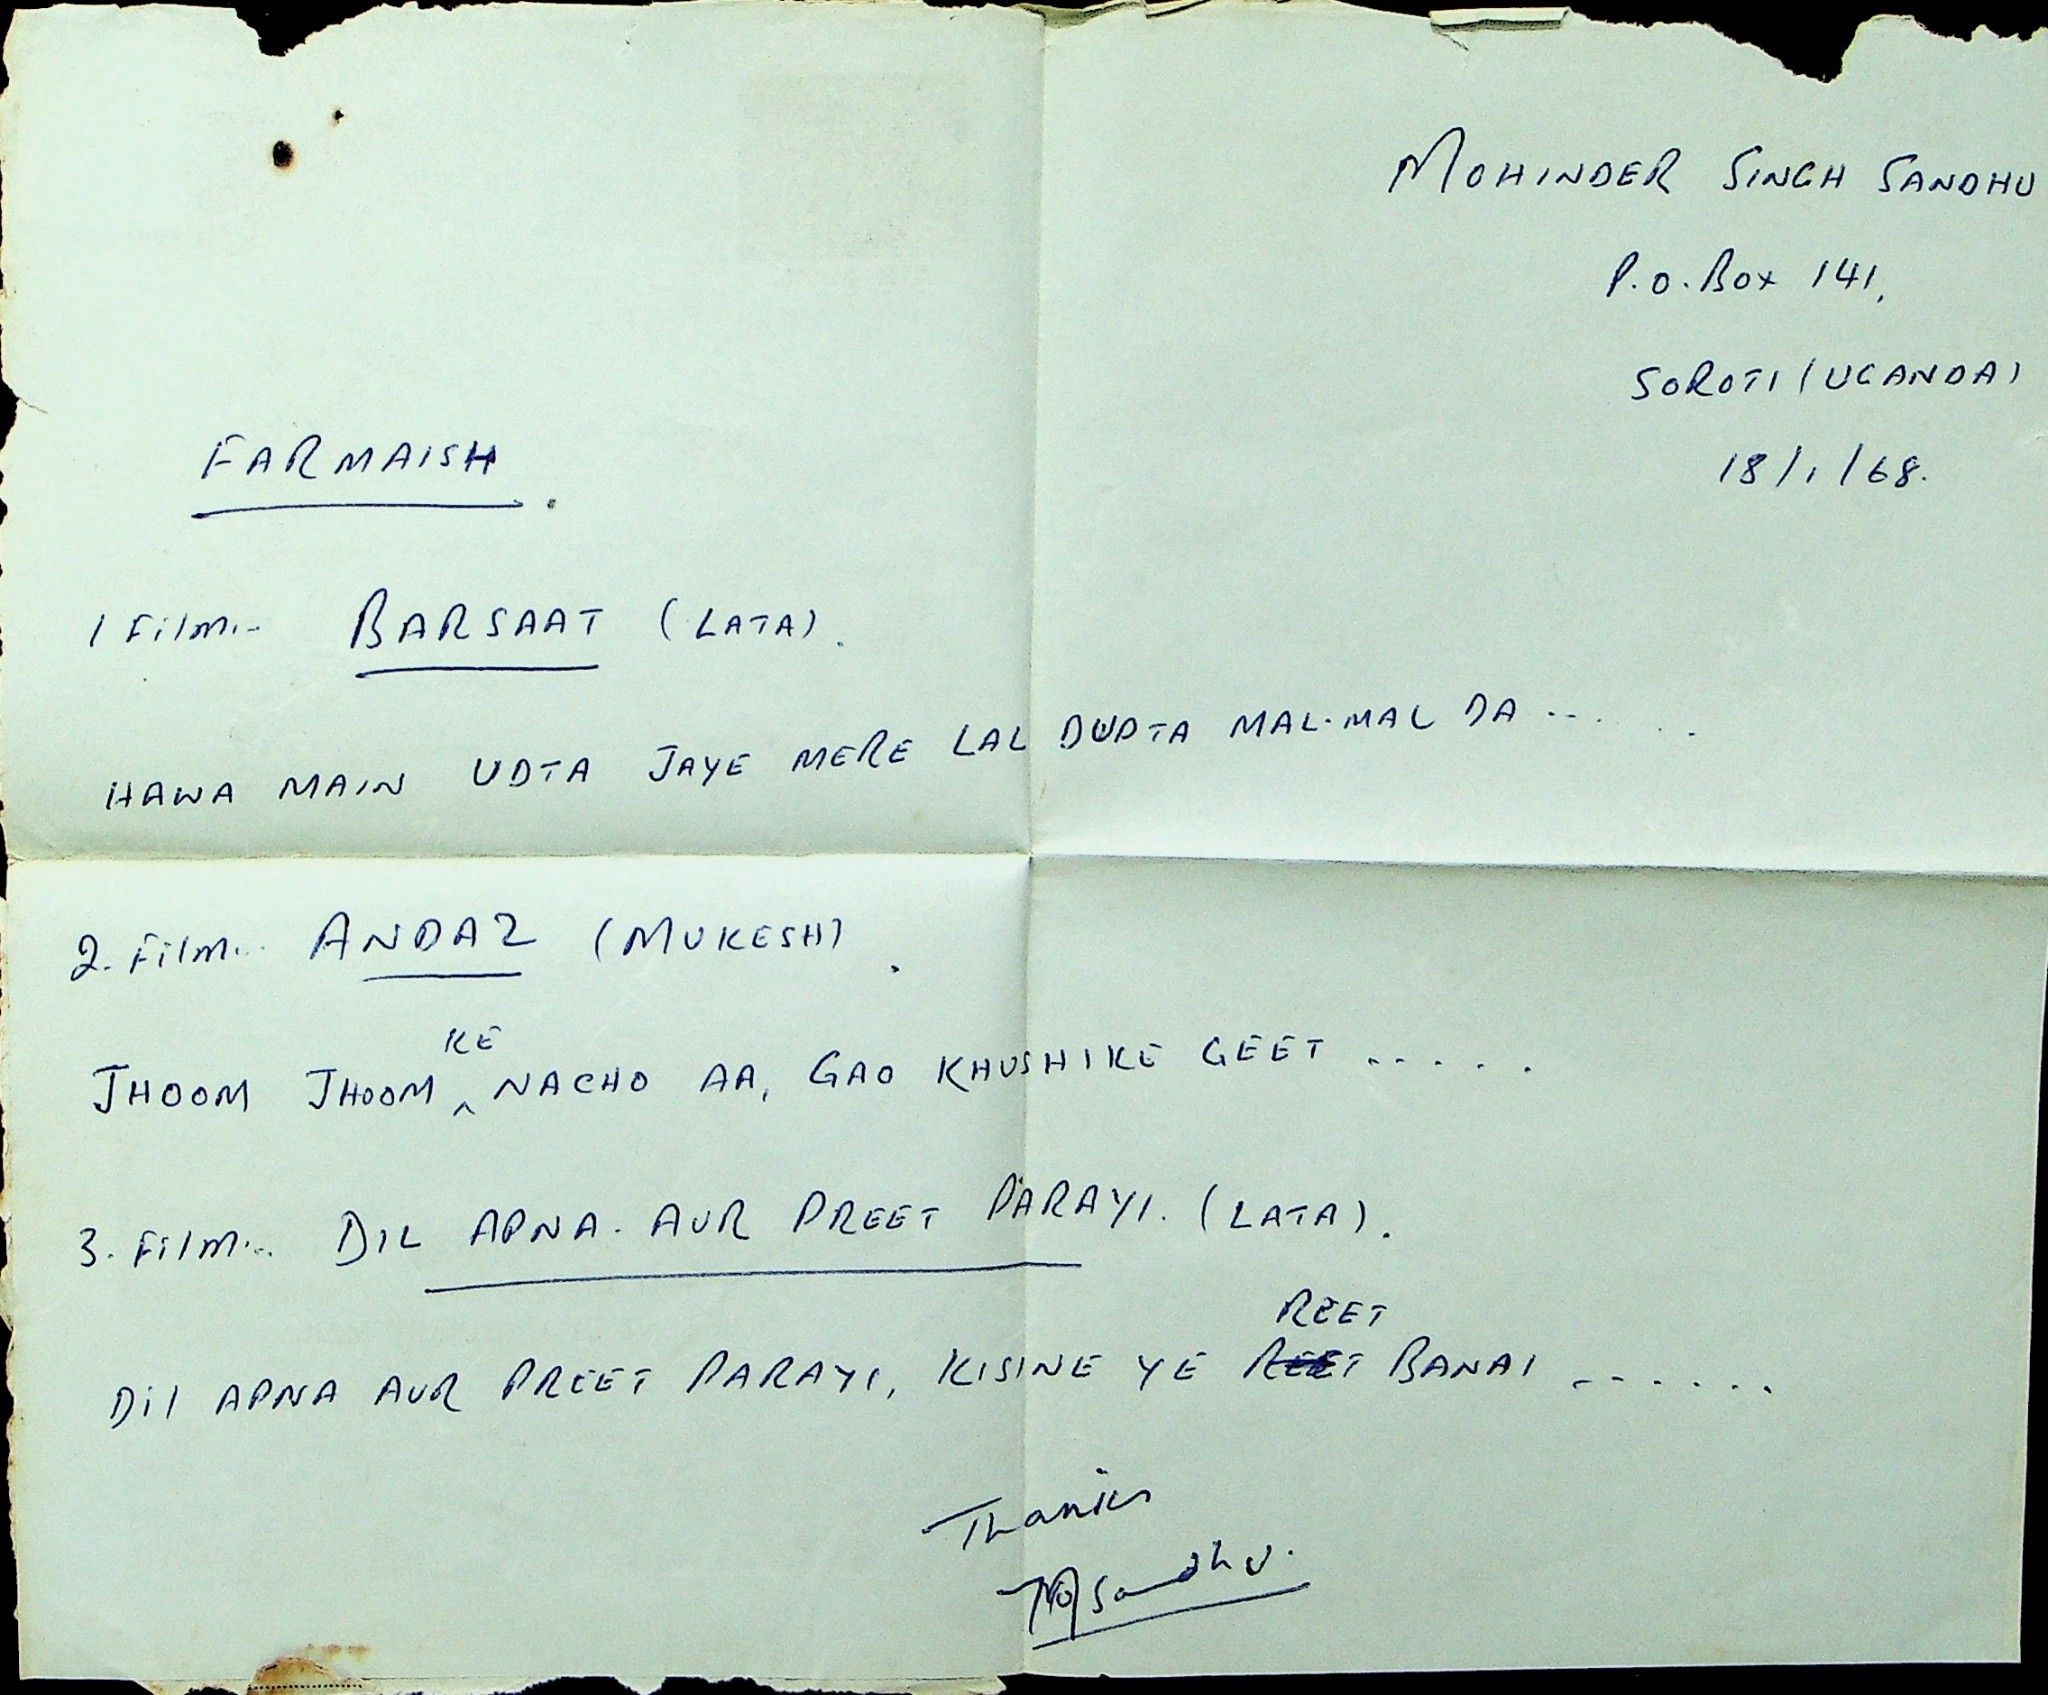 MOHINDER SINGH SANDHU
P.O. BOX 141,
SOROTI (UGANDA)
18/1/68.
FARMAISH.
1 Film:- BARSAAT (LATA).
HAWA MAIN UDTA JAYE MERE LAL DUPTA MAL-MAL DA .....
2. Film:- ANDAZ (MUKESH).
JHOOM JHOOM KE NACHO AA, GAO KHUSHI KE GEET .....
3. Film:- DIL APNA. AUR PREET PARAYI. (LATA).
REET
Dil APNA AUR PREET PARAYI, KISINE YE REET BANAI ......
Thanks
Sandhu.